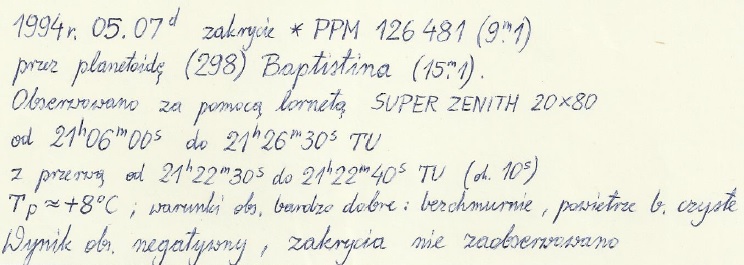 1994r. 05.07ᵈ zakrycie * PPM 126 481 (9ᵐ.1)
przez planetoidę (298) Baptistina (15ᵐ.1).
Obserwowano za pomocą lornetą SUPER ZENITH 20×80
od 21ʰ06ᵐ00ˢ do 21ʰ26ᵐ30ˢ TU
z przerwą od 21ʰ22ᵐ30ˢ do 21ʰ22ᵐ40ˢ TU (ok. 10ˢ)
Tp ≈ +8°C ; warunki obs. bardzo dobre : bezchmurnie , powietrze b. czyste
Wynik obs. negatywny , zakrycia nie zaobserwowano